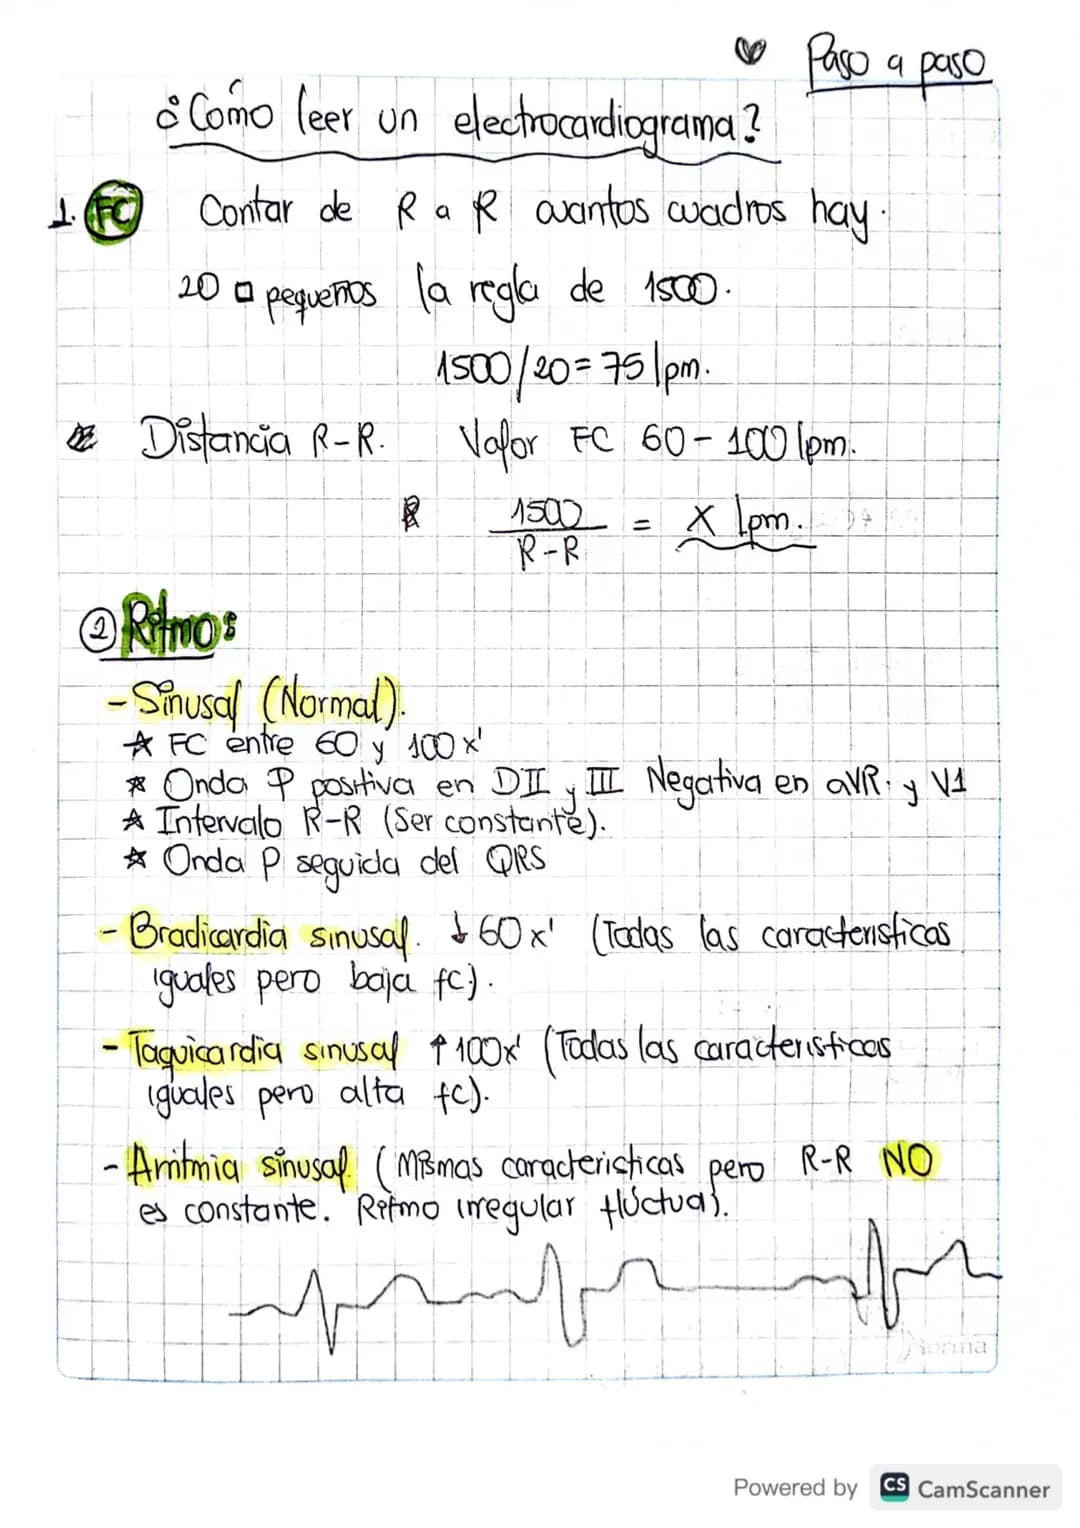 Paso a paso
¿Como leer un electrocardiograma?
1. FC Contar de R a R cuantos cuadros hay.
20 □ pequeños la regla de 1500.
1500/20 = 75 lpm.
Distancia R-R. Valor FC 60 - 100 lpm.
1500
R-R
= X lpm.
② Ritmo:
- Sinusal (Normal).
☆ FC entre 60 y 100 x'
☆ Onda P positiva en DII y III Negativa en aVR. y V1
☆ Intervalo R-R (Ser constante).
☆ Onda P seguida del QRS
- Bradicardia sinusal. ↓ 60 x' (Todas las caracteristicas
iguales pero baja fc).
- Taquicardia sinusal ↑ 100x' (Todas las caracteristicas
iguales pero alta fc).
- Arritmia sinusal. (Mismas caracteristicas pero R-R NO
es constante. Ritmo irregular fluctua).
Norma
Powered by CS CamScanner